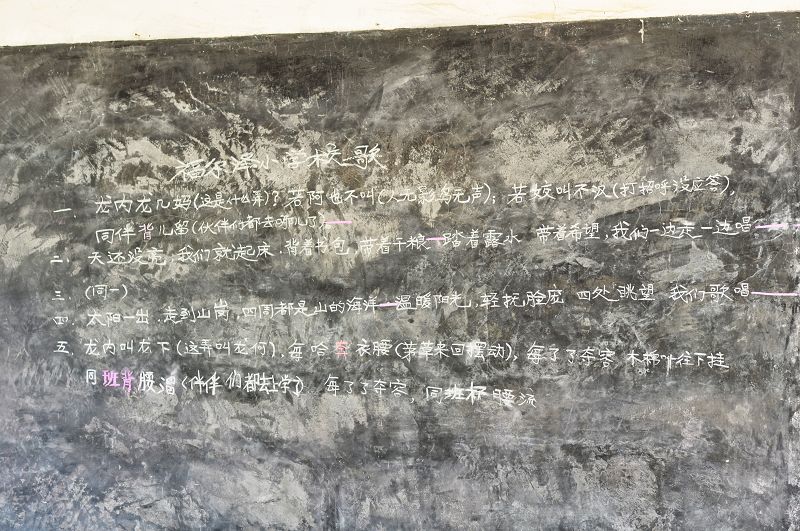 福尔泽小学校歌
一、龙内龙几妈(这是什么弄)?若阿也不叫(人无影鸟无声);若妏叫不汲(打招呼没应答),
同伴背儿溜(伙伴们都去哪儿了)—
二、天还没亮,我们就起床,背着书包 带着干粮—踏着露水 带着希望,我们一边走一边唱—
三、(同一)
四、太阳一出,走到山岗,四周都是山的海洋—温暖阳光,轻抚脸庞 四处眺望 我们歌唱—
五、龙内叫龙下(这弄叫龙何),每哈 衣腰(茅草来回摆动),每了了夲容 木棉叶往下挂
同班背腰溜(伴伴们都去学了),每了了夲容,同班杯腰流